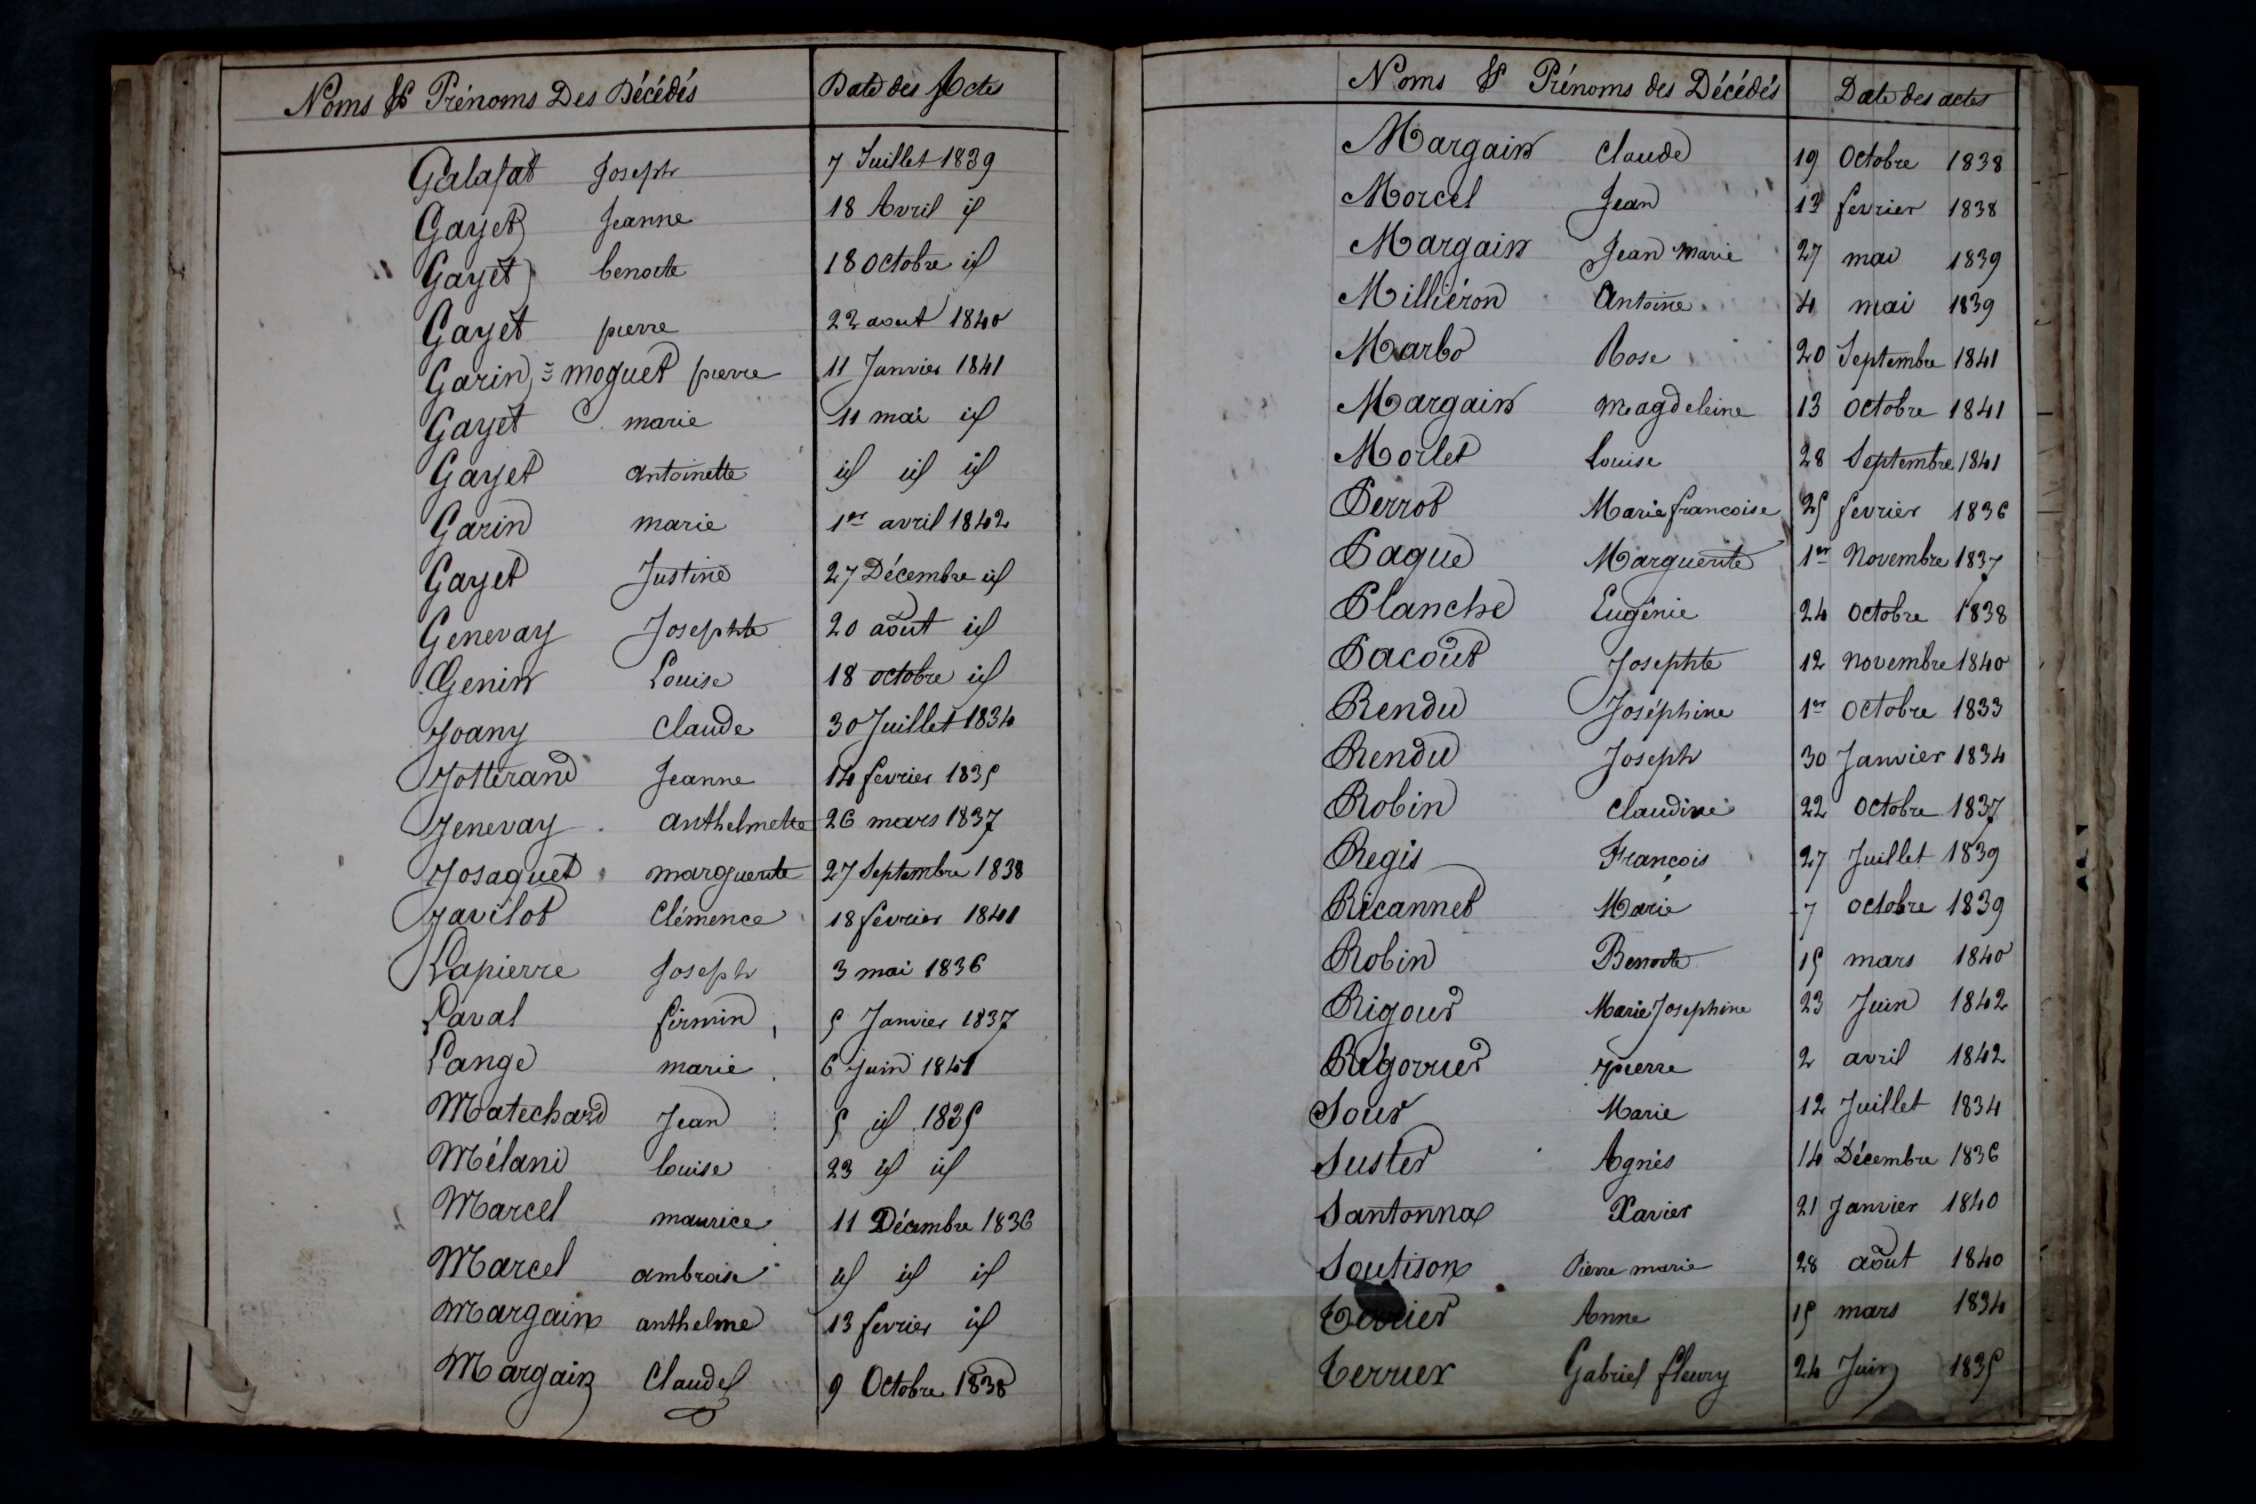 Noms & Prénoms Des Décédés Date des Actes
Galafat Joseph 7 Juillet 1839
Gayet Jeanne 18 Avril id
Gayet benoite 18 Octobre id
Gayet pierre 22 aout 1840
Garin = moguet pierre 11 Janvier 1841
Gayet marie 11 mai id
Gayet antoinette id id id
Garin marie 1er avril 1842
Gayet Justine 27 Décembre id
Genevay Josephte 20 août id
Genin Louise 18 octobre id
Joany Claude 30 Juillet 1834
Jotterand Jeanne 14 fevrier 1835
Jenevay anthelmette 26 mars 1837
Josaguet marguerite 27 Septembre 1838
Javilot Clémence 18 fevrier 1841
Lapierre Joseph 3 mai 1836
Laval firmin 5 Janvier 1837
Lange marie 6 juin 1841
Matechard Jean 5 id 1835
Mélani louise 23 id id
Marcel maurice 11 Décembre 1836
Marcel ambroise id id id
Margain anthelme 13 fevrier id
Margain Claude 9 Octobre 1838
Noms & Prénoms des Décédés Date des actes
Margain Claude 19 Octobre 1838
Morcel Jean 13 fevrier 1838
Margain Jean Marie 27 mai 1839
Milliéron Antoine 4 mai 1839
Marbo Rose 20 Septembre 1841
Margain Magdeleine 13 Octobre 1841
Morlet Louise 28 Septembre 1841
Perrot Marie francoise 25 fevrier 1836
Paque Marguerite 1er Novembre 1837
Planche Eugénie 24 Octobre 1838
Pacout Josephte 12 Novembre 1840
Rendu Joséphine 1er Octobre 1833
Rendu Joseph 30 Janvier 1834
Robin Claudine 22 Octobre 1837
Regis François 27 Juillet 1839
Ricannet Marie 7 octobre 1839
Robin Benoite 15 mars 1840
Rigour Marie Josephine 23 Juin 1842
Rigorrier pierre 2 avril 1842
Sour Marie 12 Juillet 1834
Suster Agnès 14 Décembre 1836
Santonnax Xavier 21 Janvier 1840
Soutison Pierre marie 28 août 1840
Terrier Anne 15 mars 1834
Terrier Gabriel fleury 24 Juin 1835